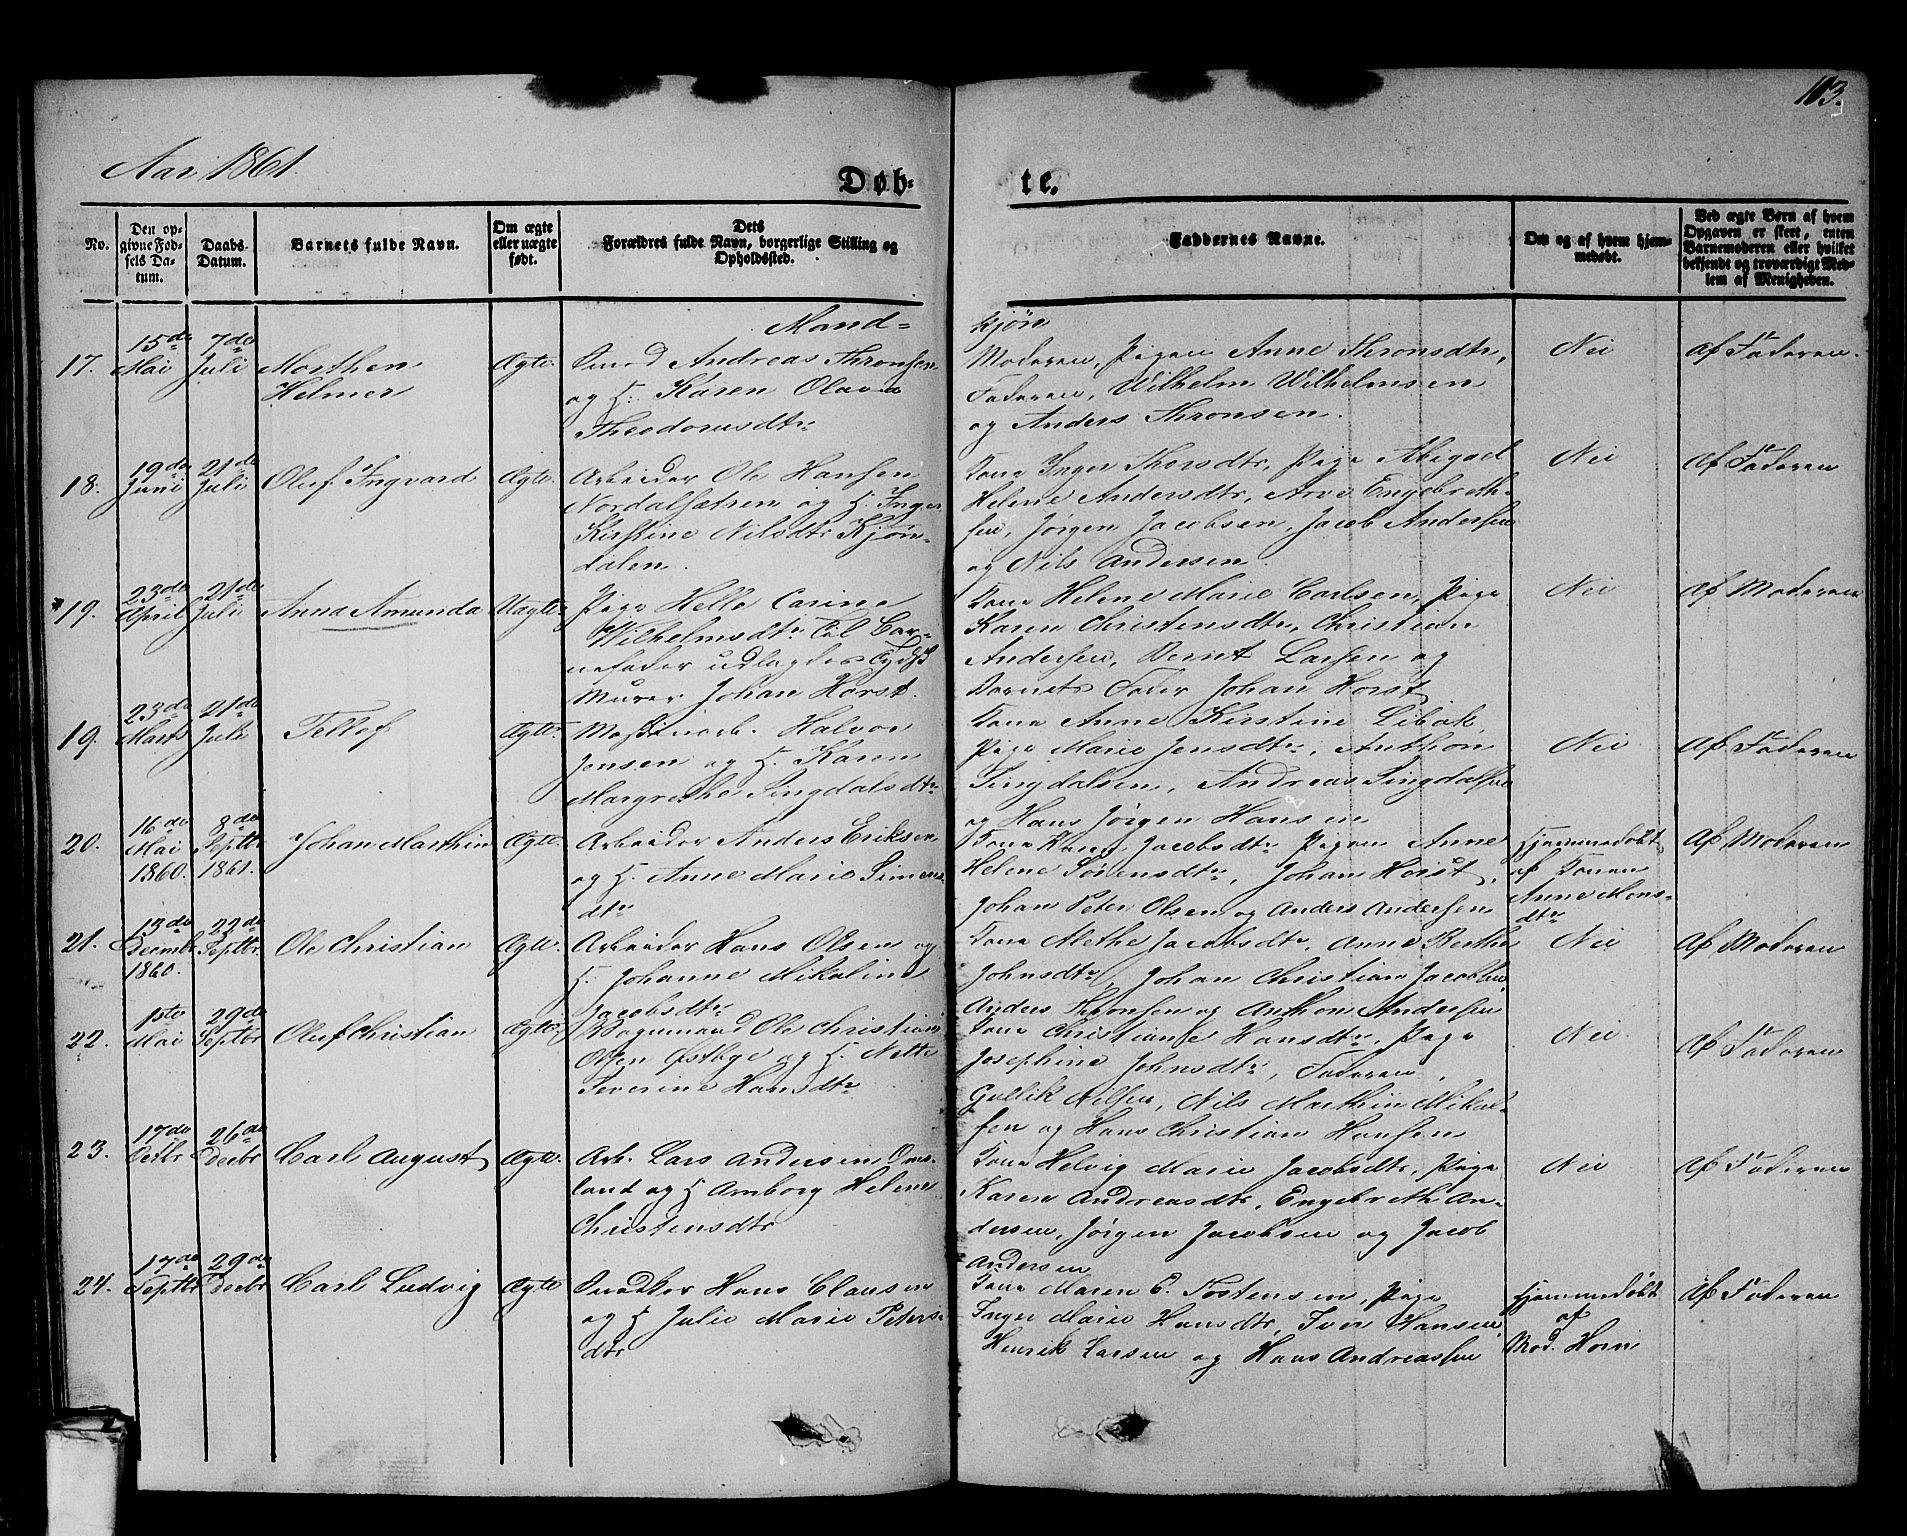 103.
Aar 1861.
Døb-
te.
No.
Den op-
givne Fød-
sels Da-
tum.
Daabs-
Datum.
Barnets fulde Navn.
Om ægte
eller uægte
født.
Dets
Forældres fulde Navn, borgerlige Stilling og
Opholdssted.
Faddernes Navne.
Om og af hvem hjem-
medøbt.
Ved ægte Børn af hvem
Opgaven er skeet, enten
Barnemoderen eller hvilket
bekjendt og troværdigt Med-
lem af Menigheden.
Mand-
kjøn
17.
15de
Mai
7de
Juli
Morthen
Helmer
Ægte.
Andreas Thronsen
og H. Karen Olava
Theodorusdtr
Moderen, Pigen Anne Thronsdtr,
Faderen, Wilhelm Wilhelmsen
og Anders Thronsen.
Nei
Af Faderen.
18.
19de
Juni
21de
Juli
Oluf Ingvard
Ægte.
Arbeider Ole Hansen
Nordalsætren og H. Inger
Kirstine Nilsdtr Kjøn-
dalen.
Kone Inger Thorsdtr, Pige Abigael
Helene Andersdtr, Arve Engebreth-
sen, Jørgen Jacobsen, Jacob Andersen
og Nils Andersen.
Nei
Af Faderen
19.
23de
April
21de
Juli
Anna Amunda
Uægte.
Pige Helle Carine
Wilhelmsdtr. Til Bar-
nefader udlagdes Tydsk
Murer Johan Horst.
Kone Helene Marie Carlsen, Pige
Karen Christensdtr, Christian
Andersen, Bernt Larsen og
Barnets Fader Johan Horst
Nei
Af Moderen
19.
23de
Marts
21de
Juli
Tellef
Ægte.
Maskinarb. Halvor
Jensen og H. Karen
Margrethe Singdalsdtr
Kone Anne Kirstine Libak,
Pige Marie Jensdtr, Anthon
Singdalsen, Andreas Singdalsen
og Hans Jørgen Hansen
Nei
Af Faderen
20.
16de
Mai
1860.
8de
Septbr
1861.
Johan Marthin
Ægte.
Arbeider Anders Eriksen
og H. Anne Marie Simens-
dtr
Kone Karen Jacobsdtr Pigen Anne
Helene Sørensdtr, Johan Horst,
Johan Peter Olsen og Anders Andersen
Hjemmedøbt
af Konen
Anne Mons-
dtr
Af Moderen
21.
13de
Decembr
1860.
22de
Septbr.
Ole Christian
Ægte.
Arbeider Hans Olsen og
H. Johanne Mikaline
Jacobsdtr
Kone Alethe Jacobsdtr, Anne Berthe
Johnsdtr, Johan Christian Jacobsen,
Anders Thronsen og Anthon Andersen
Nei
Af Moderen
22.
1ste
Mai
29de
Septbr
Oluf Christian
Ægte.
Ole Christian
Olsen Østbye og H. Nette
Severine Hansdtr
Kone Christiane Hansdtr, Pige
Josephine Johnsdtr, Faderen,
Gullik Nilsen, Nils Marthin Mikal-
sen og Hans Christian Hansen
Nei
Af Faderen
23.
17de
Octbr
26de
Decbr
Carl August
Ægte.
Arb. Lars Andersen Oms-
land og H. Amborg Helene
Christensdtr
Kone Helvig Marie Jacobsdtr, Pige
Karen Andreasdtr, Engebreth An-
dersen, Jørgen Jacobsen og Jacob
Andersen
Nei
Af Faderen
24.
17de
Septbr
29de
Decbr
Carl Ludvig
Ægte
Hans Clausen
og H. Julie Marie Peters-
dtr
Kone Maren C. Tostensen, Pige
Inger Marie Hansdtr, Iver Hansen,
Henrik Larsen og Hans Andreassen
Hjemmedøbt
af
Mad. Horn
Af Faderen